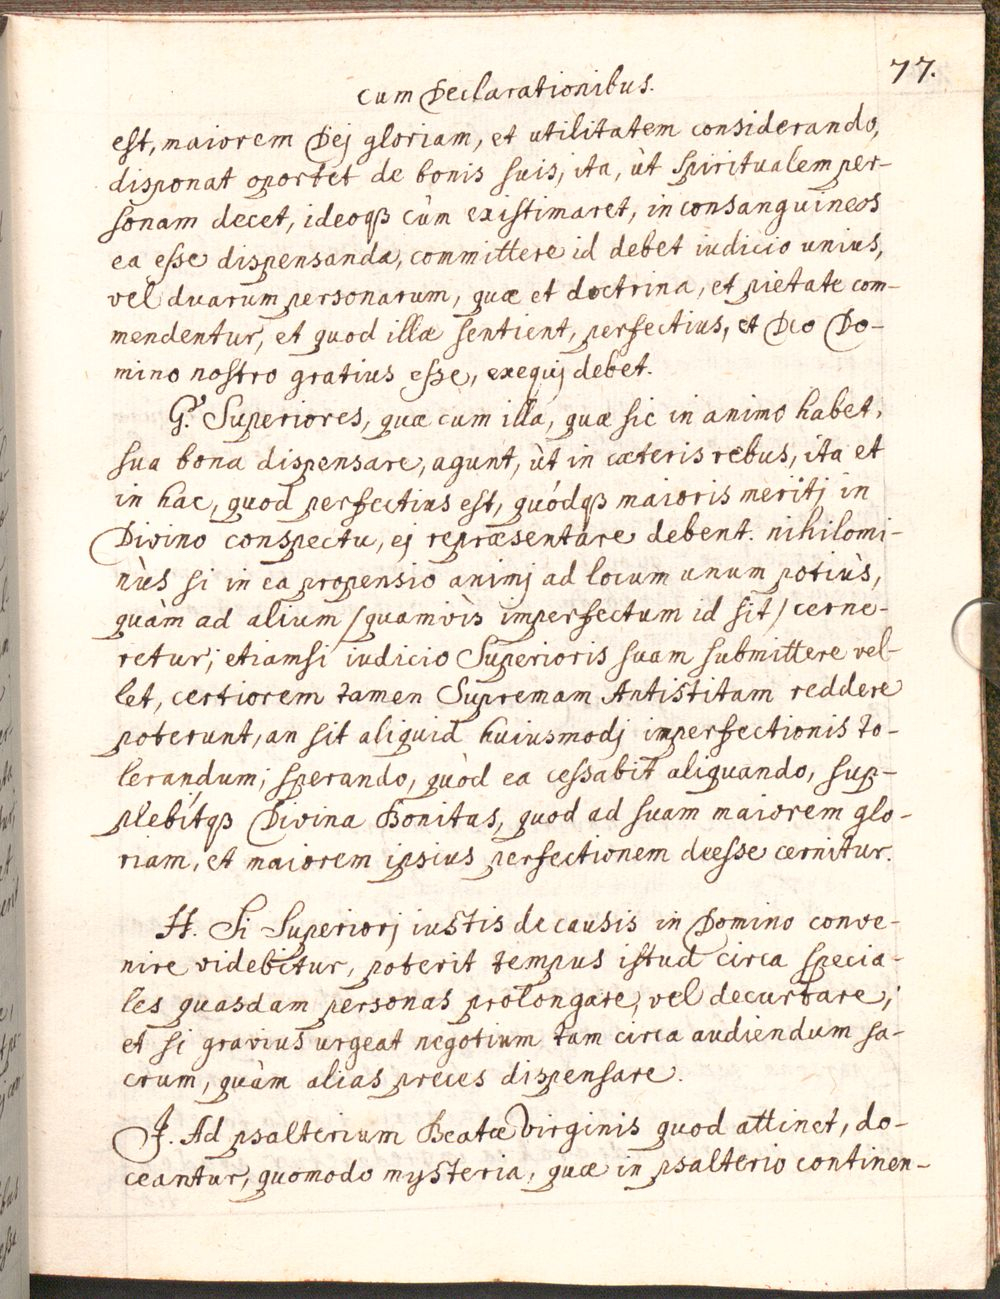 77.
cum Declarationibus.
est, maiorem Dej gloriam, et utilitatem considerando,
disponat oportet de bonis suis, ita, ùt spiritualem per-
sonam decet, ideoqß cùm existimaret, in consanguineos
ea esse dispensanda, committere id debet iudicio unius,
vel duarum personarum, quæ et doctrina, et pietate com-
mendentur, et quod illæ sentient, perfectius, et Deo Do-
mino nostro gratius esse, exequj debet.
G. Superiores, quæ cum illa, quæ sic in animo habet,
sua bona dispensare, agunt, ùt in cæteris rebus, ita et
in hac, quod perfectius est, quódqß maioris meritj in
Divino conspectu, ej repræsentare debent. nihilomi-
nùs si in ea propensio animj ad locum unum potiùs,
quàm ad alium /quamvìs imperfectum id sit/ cerne-
retur; etiamsi iudicio Superioris suam submittere vel-
let, certiorem tamen Supremam Antistitam reddere
poterunt, an sit aliquid huiusmodj imperfectionis to-
lerandum; sperando, quòd ea cessabit aliquando, sup-
plebítqß Divina Bonitas, quod ad suam maiorem glo-
riam, et maiorem ipsius perfectionem deesse cernitur.
H. Si Superiorj iustis de causis in Domino conve-
nire videbitur, poterit tempus istud circa specia-
les quasdam personas prolongare, vel decurtare;
et si gravius urgeat negotium tam circa audiendum sa-
crum, quàm alias preces dispensare.
J. Ad psalterium Beatæ Virginis quod attinet, do-
ceantur, quomodo mysteria, quæ in psalterio continen-